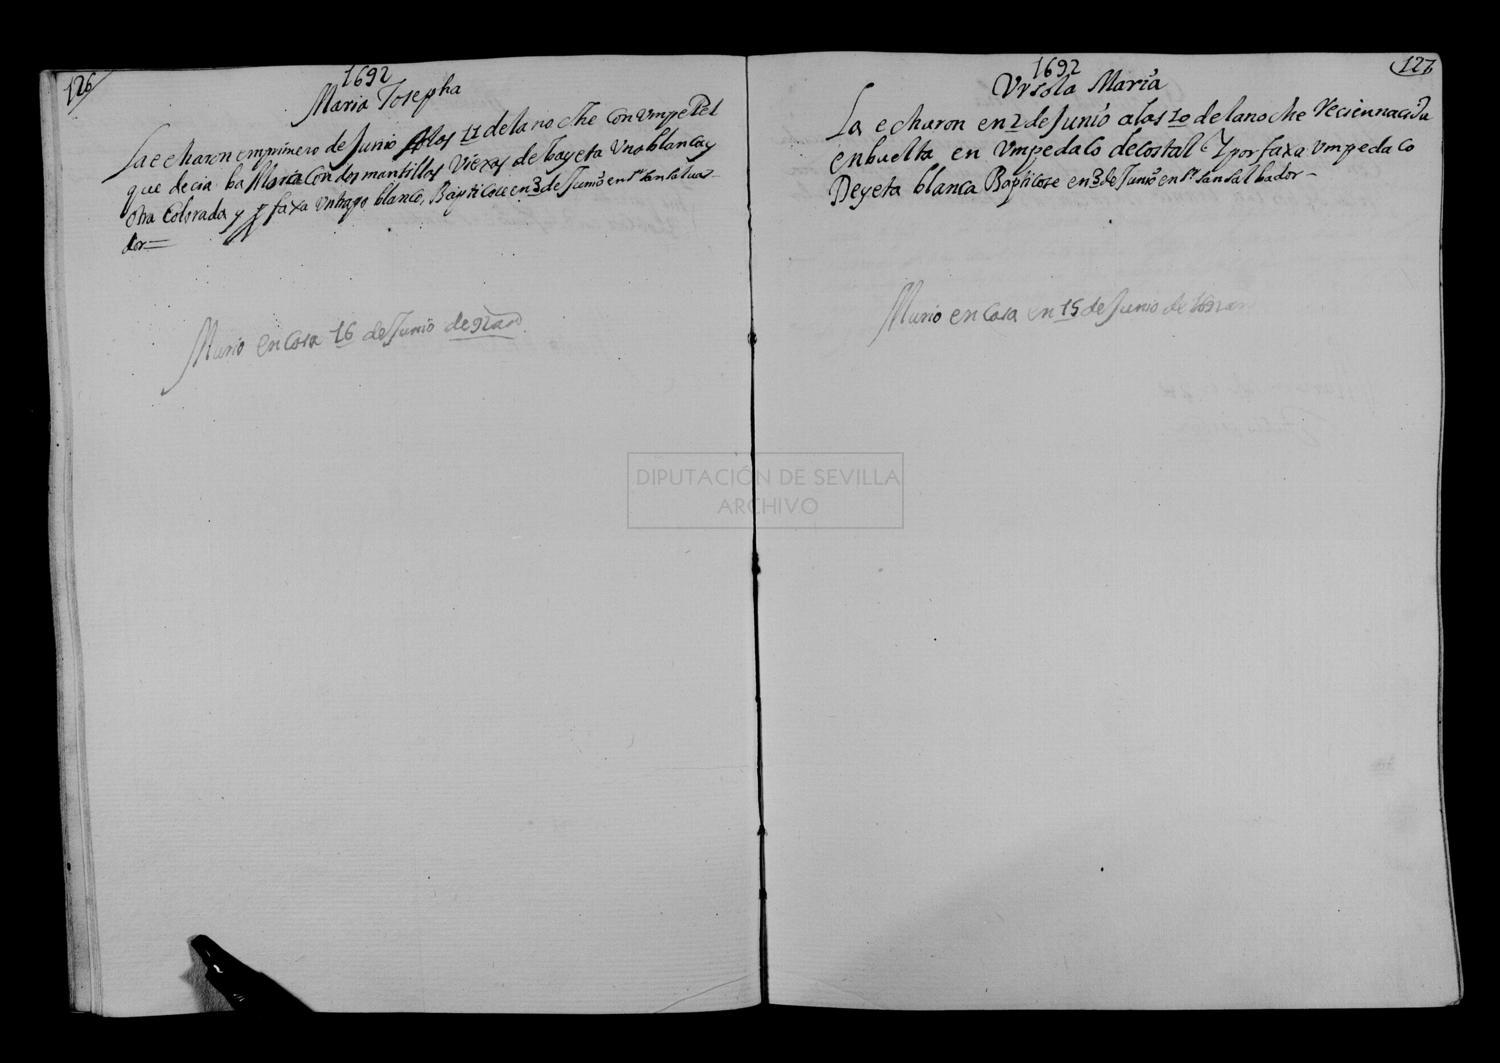 126
1692
Maria Josepha
La echaron emprimero de Junio Alas 11 de la noche con Vmpepel
que decia ba Maria Con dos mantillas Viexas de bayeta Vna blanca y
otra Colorada y pr faxa Vntrapo blanco, Bapticose en 3 de Junio en Sn Sansalua-
dor=
Murio en Casa 16 de Junio de 92
127
1692
Vrsola Maria
La echaron en 2 de Junio alas 10 de la noche Reciennacida
enbuelta en Vmpedaco de costal e Y por faxa Vmpedaco
Beyeta blanca Bapticose en 3 de Junio en Sn Sansalbador-
Murio en Casa en 15 de Junio de 1692
DIPUTACIÓN DE SEVILLA
ARCHIVO